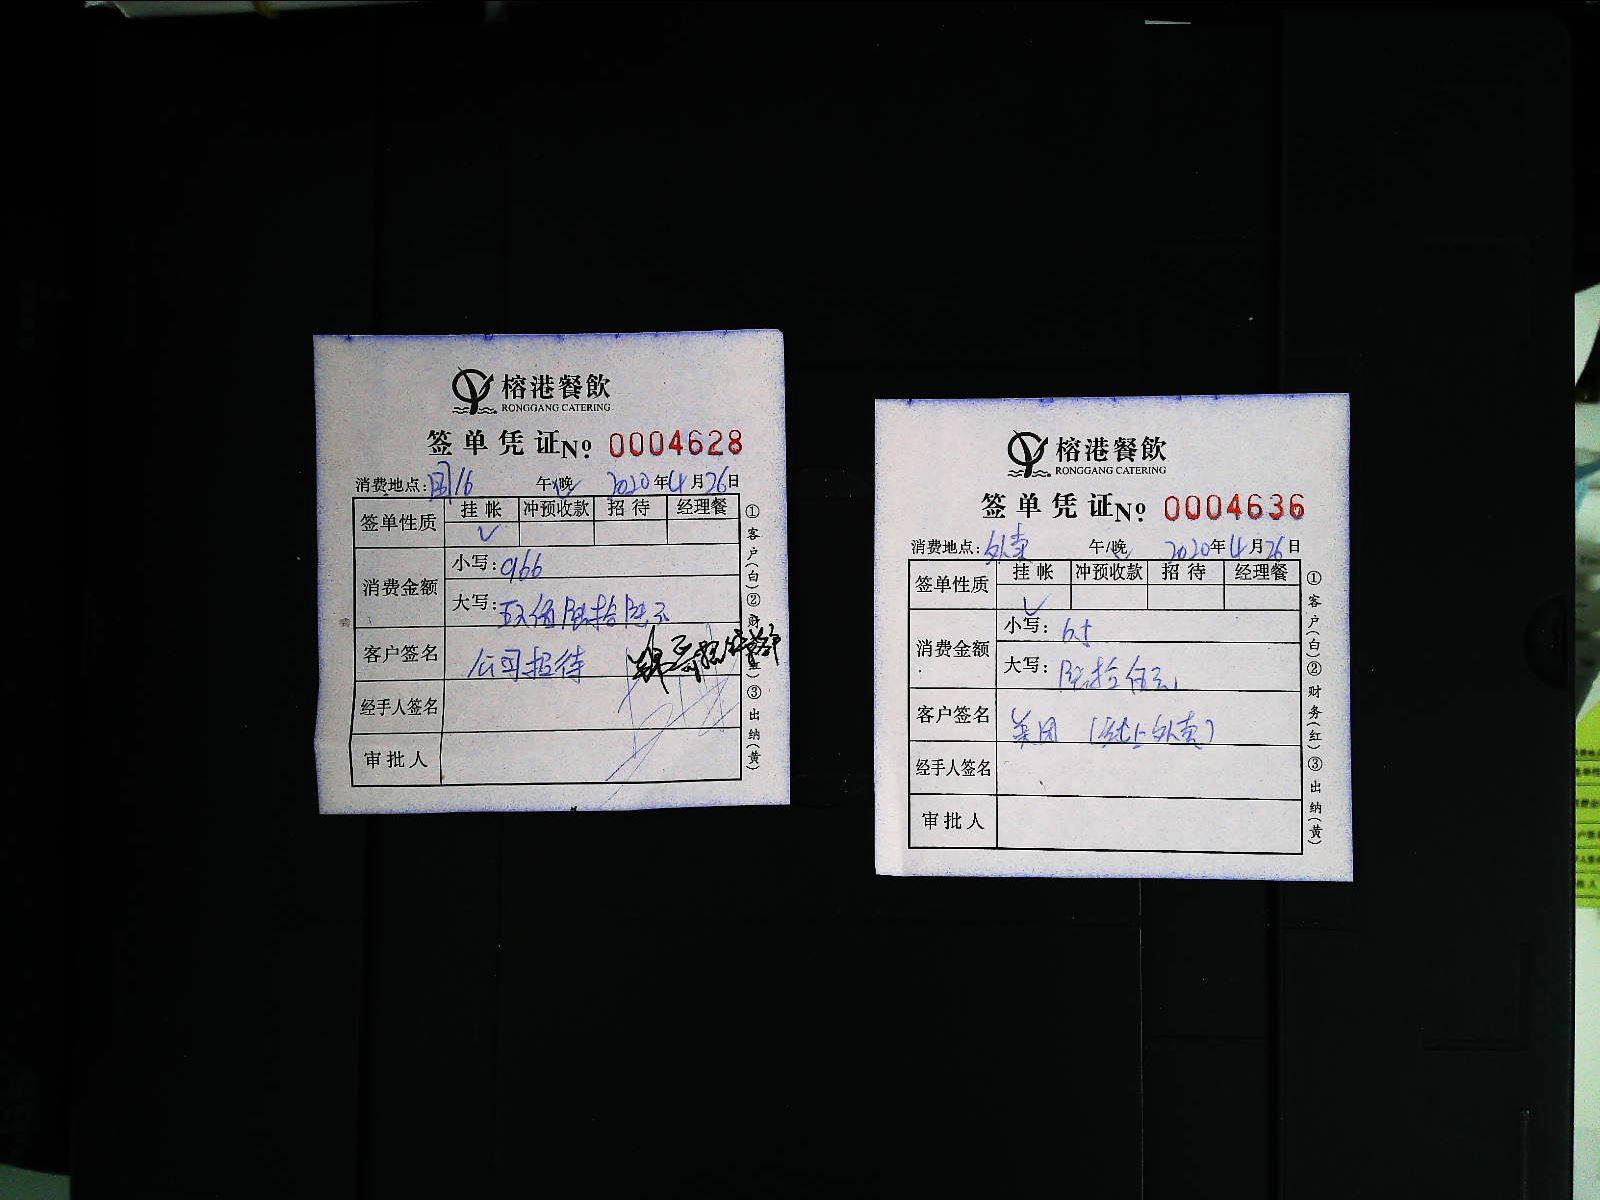 榕港餐飲
RONGGANG CATERING
签单凭证 No. 0004628
消费地点: 16 午/晚 2020年4月26日
签单性质 挂帐 冲预收款 招待 经理餐
✓
消费金额 小写: 966
大写: 玖佰陆拾陆元
客户签名 公司招待
经手人签名
审批人
①客户(白)②财务(红)③出纳(黄)
榕港餐飲
RONGGANG CATERING
签单凭证 No. 0004636
消费地点: 外卖 午/晚 2020年4月26日
签单性质 挂帐 冲预收款 招待 经理餐
✓
消费金额 小写: 65
大写: 陆拾伍元
客户签名 美团 (线上外卖)
经手人签名
审批人
①客户(白)②财务(红)③出纳(黄)